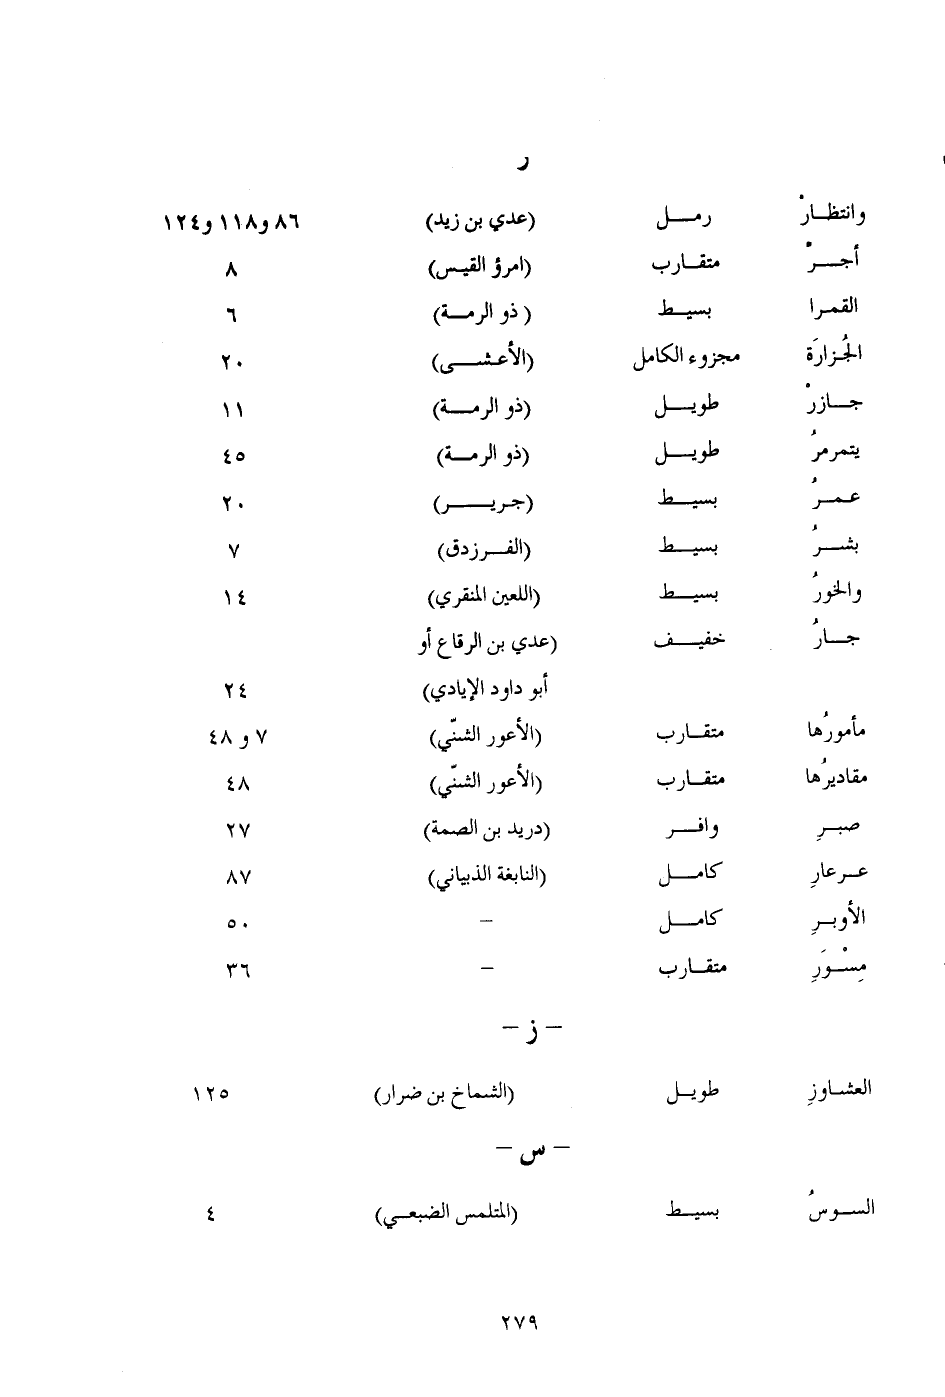 ر
وانتظارْ رمــل (عدي بن زيد) ٨٦ و١١٨ و١٢٤
أجــرْ متقـارب (امرؤ القيس) ٨
القمرا بسيـط (ذو الرمــة) ٦
الجُزارَة مجزوء الكامل (الأعشــى) ٢٠
جــازرْ طويــل (ذو الرمــة) ١١
يتمرمرُ طويــل (ذو الرمــة) ٤٥
عمــرُ بسيــط (جريــــر) ٢٠
بشــرُ بسيــط (الفــرزدق) ٧
والخورُ بسيــط (اللعين المنقري) ١٤
جــارُ خفيــف (عدي بن الرقاع أو
أبو داود الإيادي) ٢٤
مأمورُها متقـارب (الأعور الشنّي) ٧ و ٤٨
مقاديرُها متقـارب (الأعور الشنّي) ٤٨
صبــرِ وافــر (دريد بن الصمة) ٢٧
عــرعارِ كامــل (النابغة الذبياني) ٨٧
الأوبــرِ كامــل – ٥٠
مِسْــوَرِ متقـارب – ٣٦
– ز –
العشـاوزِ طويـل (الشماخ بن ضرار) ١٢٥
– س –
السـوسُ بسيـط (المتلمس الضبعـي) ٤
٢٧٩